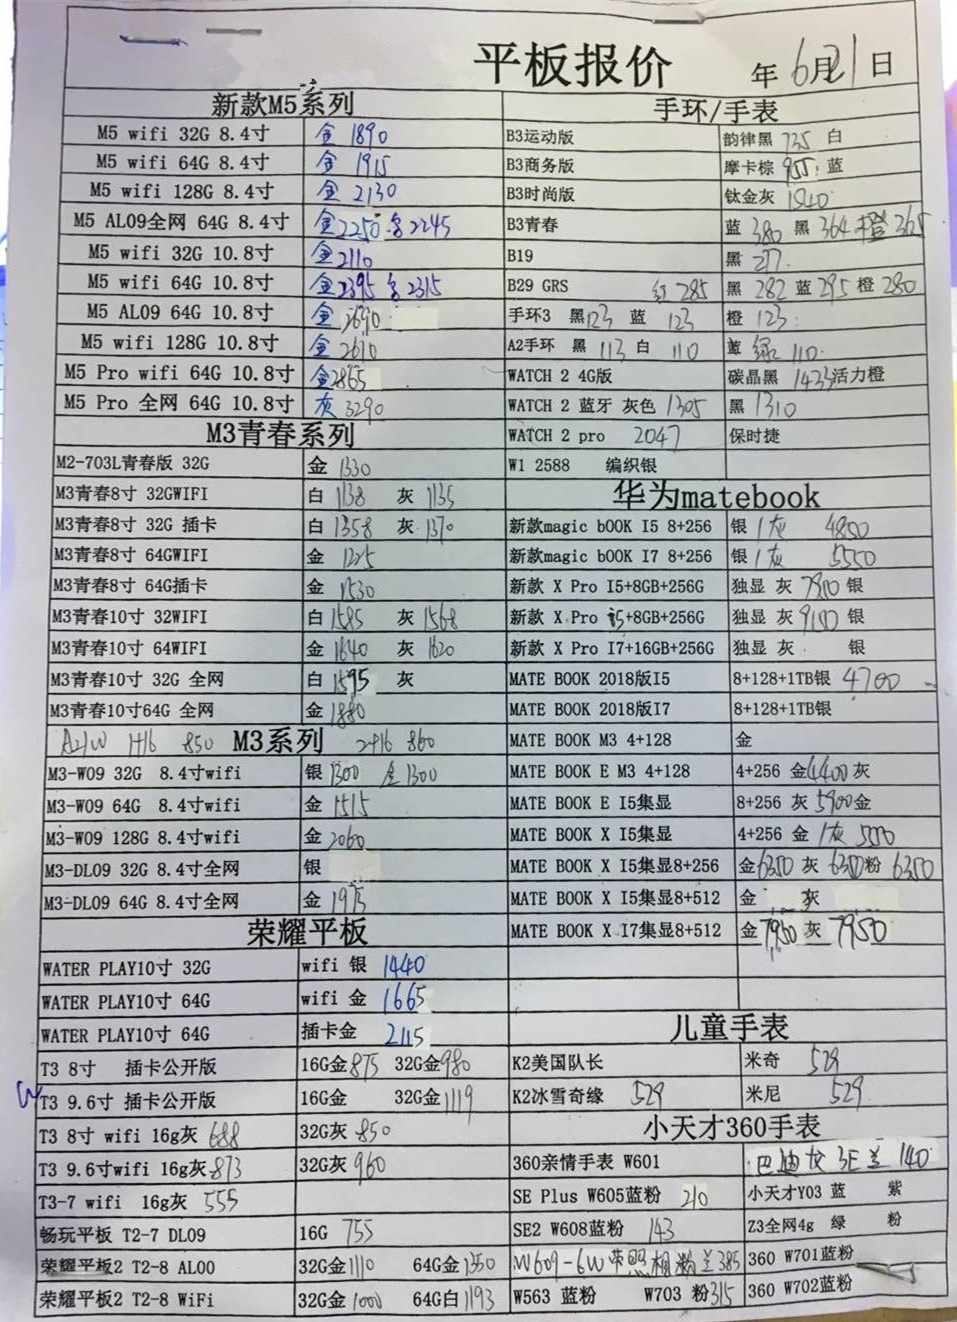 平板报价 年 6月21日
新款M5系列
M5 wifi 32G 8.4寸 金 1890
M5 wifi 64G 8.4寸 金 1915
M5 wifi 128G 8.4寸 金 2130
M5 AL09全网 64G 8.4寸 金2250 2245
M5 wifi 32G 10.8寸 金2110
M5 wifi 64G 10.8寸 金2395 2315
M5 AL09 64G 10.8寸 金 2690
M5 wifi 128G 10.8寸 金 2610
M5 Pro wifi 64G 10.8寸 金2865
M5 Pro 全网 64G 10.8寸 灰 3290
M3青春系列
M2-703L青春版 32G 金 1330
M3青春8寸 32GWIFI 白 1138 灰 1135
M3青春8寸 32G 插卡 白 1358 灰 1370
M3青春8寸 64GWIFI 金 1225
M3青春8寸 64G插卡 金 1530
M3青春10寸 32WIFI 白 1585 灰 1568
M3青春10寸 64WIFI 金 1640 灰 1620
M3青春10寸 32G 全网 白 1595 灰
M3青春10寸64G 全网 金 1880
1+16 850 M3系列 2+16 860
M3-W09 32G 8.4寸wifi 银 1300 金 1300
M3-W09 64G 8.4寸wifi 金 1515
M3-W09 128G 8.4寸wifi 金 2060
M3-DL09 32G 8.4寸全网 银
M3-DL09 64G 8.4寸全网 金 1975
荣耀平板
WATER PLAY10寸 32G wifi 银 1440
WATER PLAY10寸 64G wifi 金 1665
WATER PLAY10寸 64G 插卡金 2115
T3 8寸 插卡公开版 16G金875 32G金980
W T3 9.6寸 插卡公开版 16G金 32G金1119
T3 8寸 wifi 16g灰 688 32G灰 850
T3 9.6寸wifi 16g灰 873 32G灰 960
T3-7 wifi 16g灰 555
畅玩平板 T2-7 DL09 16G 755
荣耀平板2 T2-8 AL00 32G金1110 64G金1350
荣耀平板2 T2-8 WiFi 32G金1000 64G白1193
手环/手表
B3运动版 韵律黑 735 白
B3商务版 摩卡棕 955 蓝
B3时尚版 钛金灰
B3青春 蓝 380 黑 364 橙 365
B19 黑 277
B29 GRS 红 285 黑 282 蓝 295 橙 280
手环3 黑123 蓝 123 橙 123
A2手环 黑 113 白 110 蓝 绿 110
WATCH 2 4G版 碳晶黑 1433活力橙
WATCH 2 蓝牙 灰色 1305 黑 1310
WATCH 2 pro 2047 保时捷
W1 2588 编织银
华为matebook
新款magic bOOK I5 8+256 银 / 灰 4800
新款magic bOOK I7 8+256 银 / 灰 5550
新款 X Pro I5+8GB+256G 独显 灰 7900 银
新款 X Pro i5+8GB+256G 独显 灰 9100 银
新款 X Pro I7+16GB+256G 独显 灰 银
MATE BOOK 2018版I5 8+128+1TB银 4700
MATE BOOK 2018版I7 8+128+1TB银
MATE BOOK M3 4+128 金
MATE BOOK E M3 4+128 4+256 金4400灰
MATE BOOK E I5集显 8+256 灰 5900金
MATE BOOK X I5集显 4+256 金 / 灰
MATE BOOK X I5集显8+256 金6350 灰 6350粉 6350
MATE BOOK X I5集显8+512 金 灰
MATE BOOK X I7集显8+512 金7950 灰 7950
儿童手表
K2美国队长 米奇 529
K2冰雪奇缘 529 米尼 529
小天才360手表
360亲情手表 W601 巴迪龙 3E 兰 140
SE Plus W605蓝粉 210 小天才Y03 蓝 紫
SE2 W608蓝粉 143 Z3全网4g 绿 粉
W609-6W带照相粉兰385 360 W701蓝粉
W563 蓝粉 W703 粉315 360 W702蓝粉